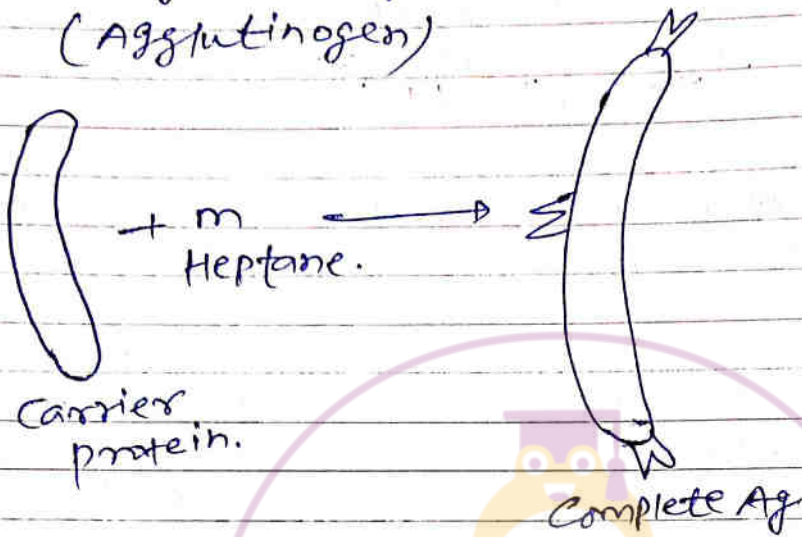 (Agglutinogen)
+ m
Heptane.
Carrier
protein.
Complete Ag